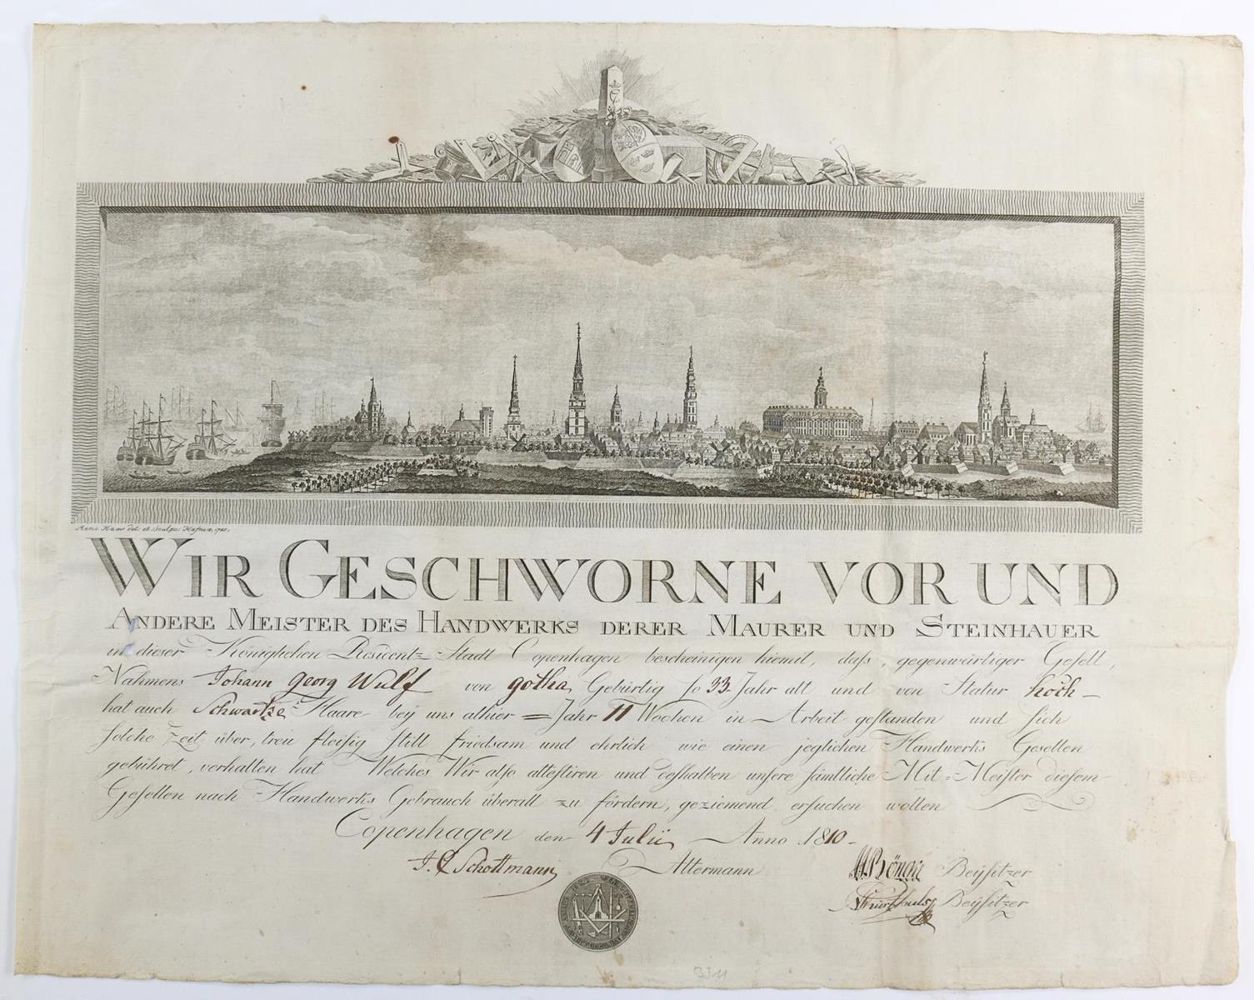 WIR GESCHWORNE VOR UND
ANDERE MEISTER DES HANDWERKS DERER MAURER UND STEINHAUER
in dieser Königlichen Residentz-Stadt Copenhagen bescheinigen hiemit, daß, gegenwärtiger Gesell,
Nahmens Johann Georg Wulf von Gotha Gebürtig so 33 Jahr alt und von Statur hoch
hat auch Schwartze Haare beÿ uns alhier = Jahr 11 Wochen in Arbeit gestanden und sich
solche Zeit über, treu fleißig still friedsam und ehrlich wie einen jeglichen Handwerks Gesellen
gebühret, verhalten hat Welches Wir also attestiren und deshalben unsere sämtliche Mit-Meister diesem
Gesellen nach Handwerks Gebrauch überall zu fördern, geziemend ersuchen wollen
Copenhagen den 4 Julii Anno 1810
J. C Schottmann Altermann
Beÿsitzer
Beÿsitzer